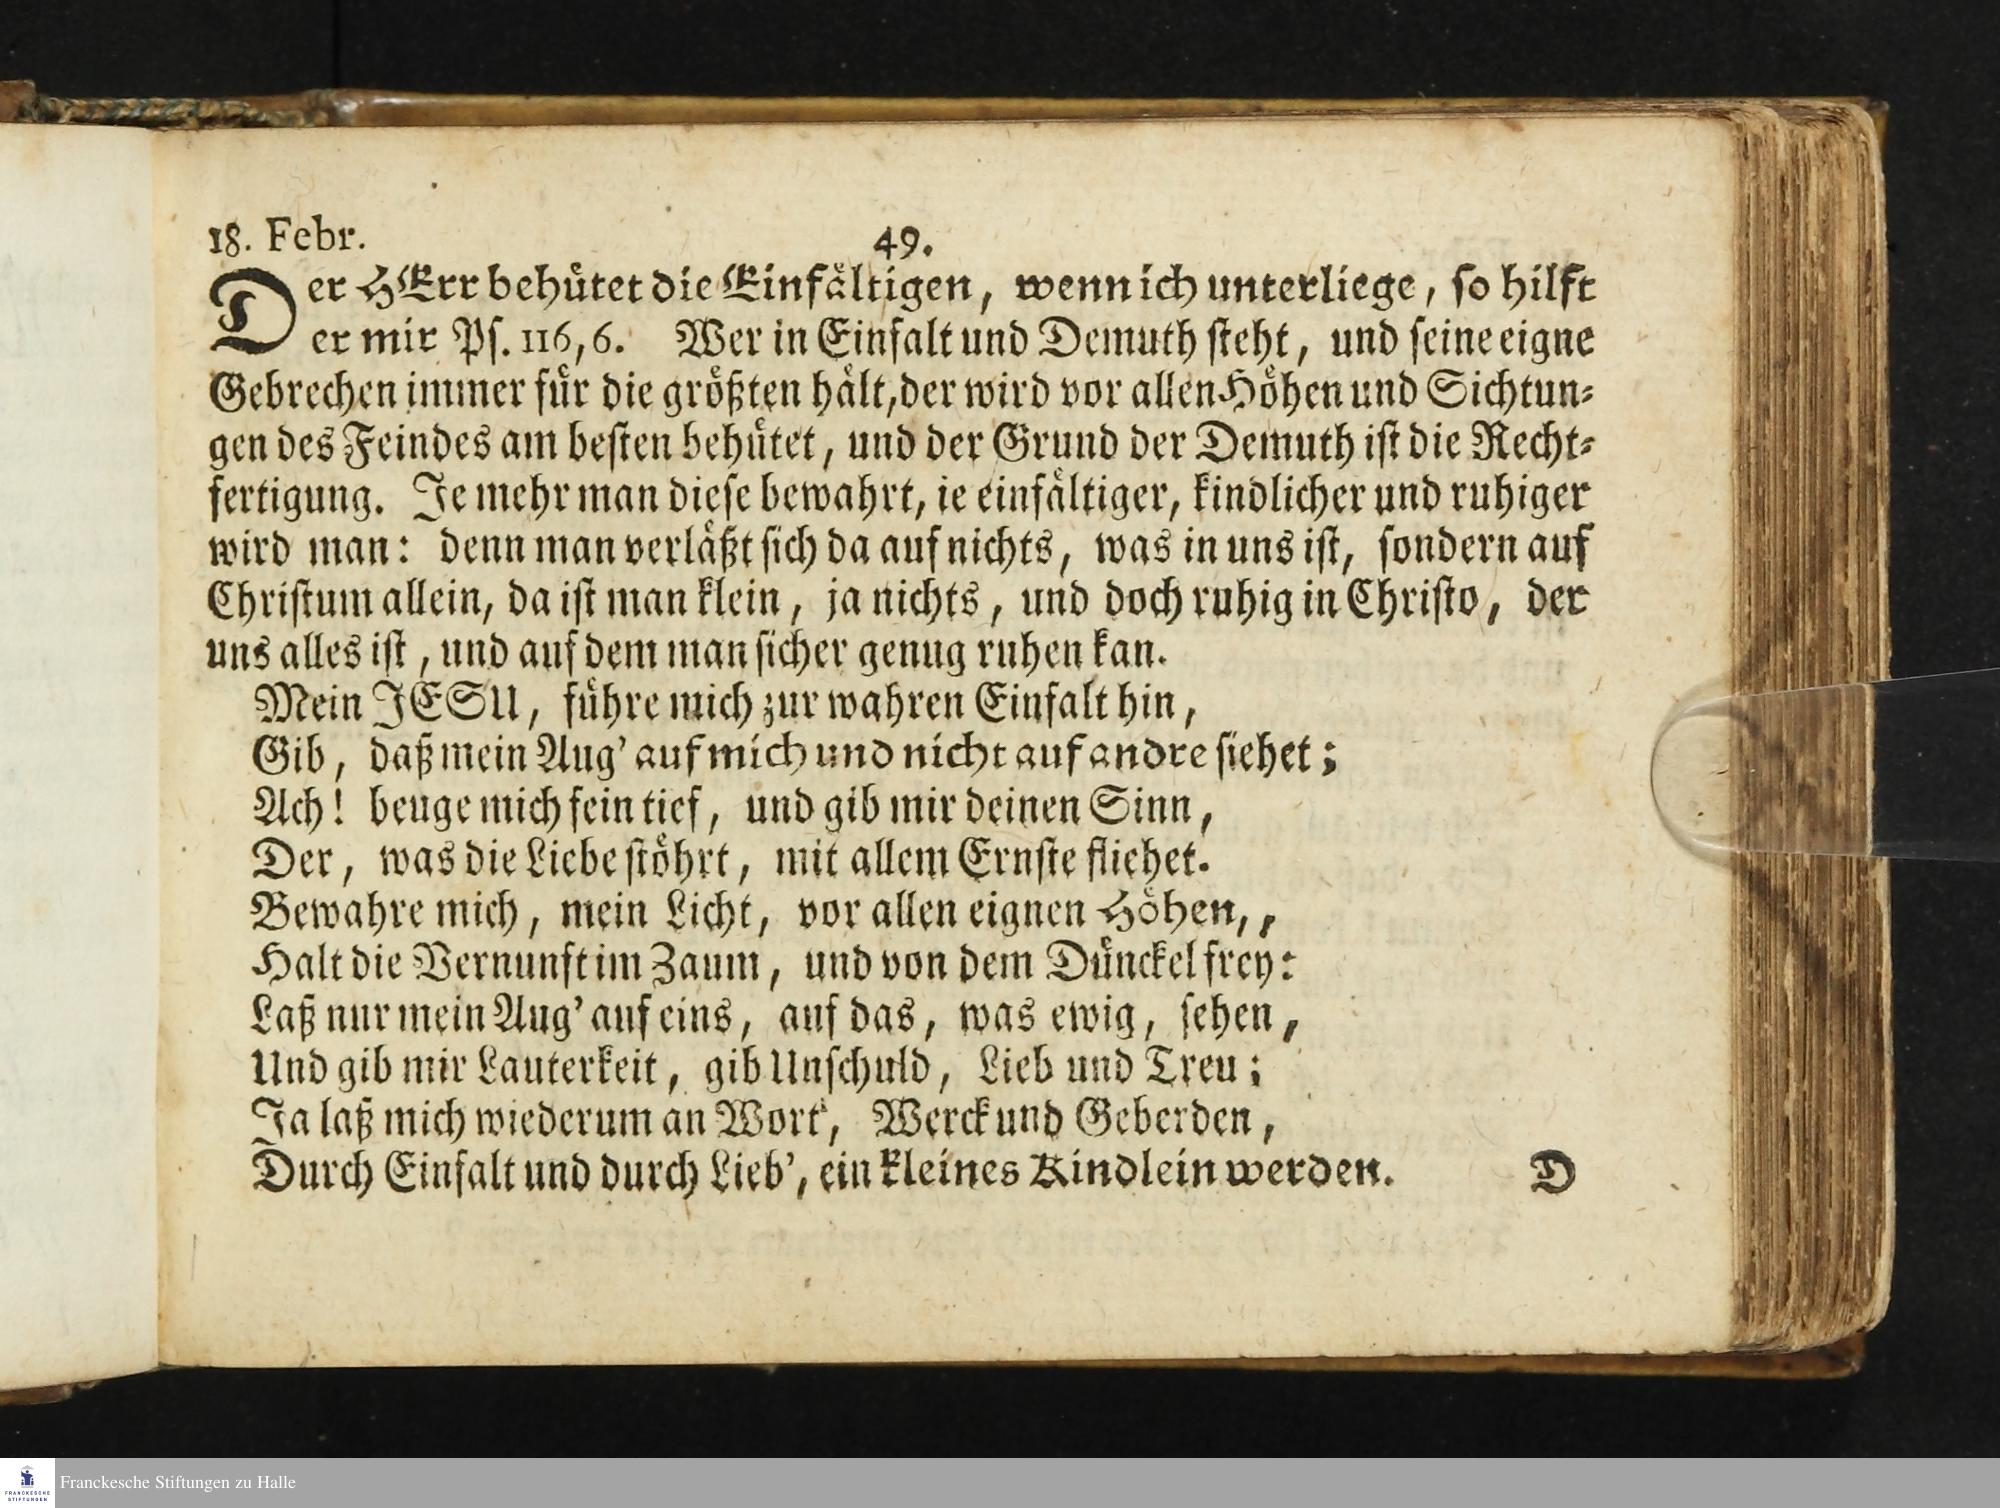 18. Febr.
49.
Der HErr behütet die Einfältigen, wenn ich unterliege, so hilft
er mir Ps. 116, 6. Wer in Einfalt und Demuth steht, und seine eigne
Gebrechen immer für die größten hält, der wird vor allen Höhen und Sichtun-
gen des Feindes am besten behütet, und der Grund der Demuth ist die Recht-
fertigung. Je mehr man diese bewahrt, ie einfältiger, kindlicher und ruhiger
wird man: denn man verläßt sich da auf nichts, was in uns ist, sondern auf
Christum allein, da ist man klein, ja nichts, und doch ruhig in Christo, der
uns alles ist, und auf dem man sicher genug ruhen kan.
Mein JESU, führe mich zur wahren Einfalt hin,
Gib, daß mein Aug' auf mich und nicht auf andre siehet;
Ach! beuge mich fein tief, und gib mir deinen Sinn,
Der, was die Liebe stöhrt, mit allem Ernste fliehet.
Bewahre mich, mein Licht, vor allen eignen Höhen,,
Halt die Vernunft im Zaum, und von dem Dünckel frey:
Laß nur mein Aug' auf eins, auf das, was ewig, sehen,
Und gib mir Lauterkeit, gib Unschuld, Lieb und Treu;
Ja laß mich wiederum an Wort', Werck und Geberden,
Durch Einfalt und durch Lieb', ein kleines Kindlein werden.
D
FRANCKESCHE
STIFTUNGEN
Franckesche Stiftungen zu Halle